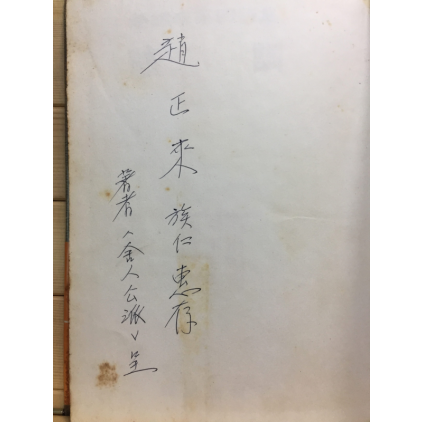 趙正來 族仁 惠存
著者〈舍人公派〉呈